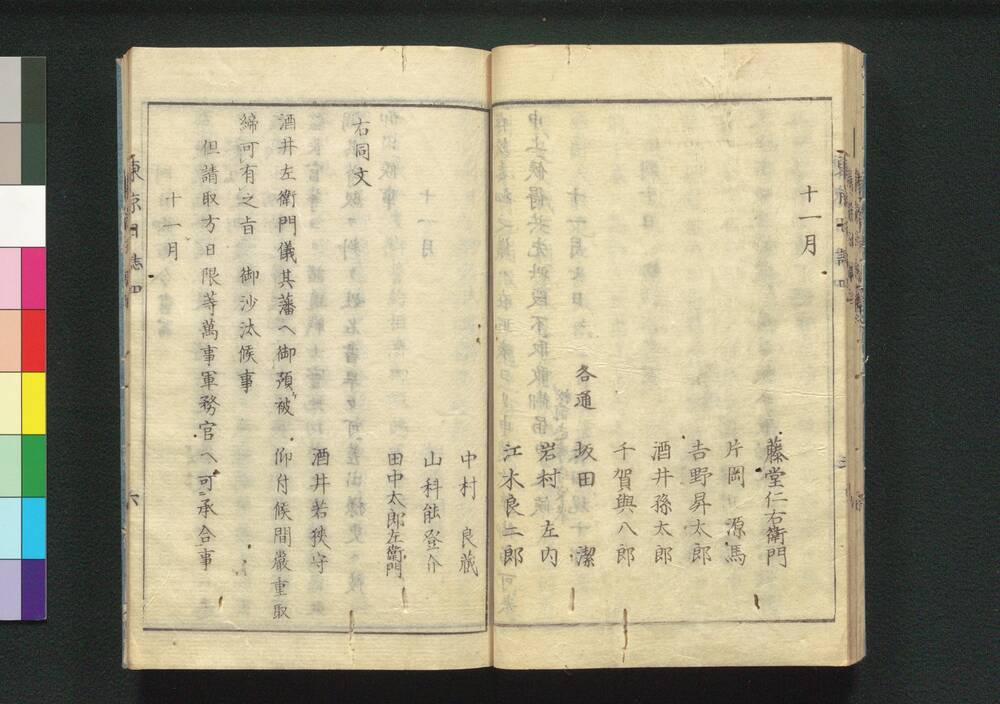 十一月
藤堂仁右衛門
片岡源馬
吉野昇太郎
酒井孫太郎
千賀與八郎
各通
坂田潔
岩村左内
江木良二郎
中村良蔵
山科能登介
田中太郎左衛門
右同文
酒井若狹守
酒井左衛門儀其藩ヘ御預被 仰付候間嚴重取
締可有之旨 御沙汰候事
但請取方日限等萬事軍務官ヘ可承合事
十一月
東京日誌 四
六